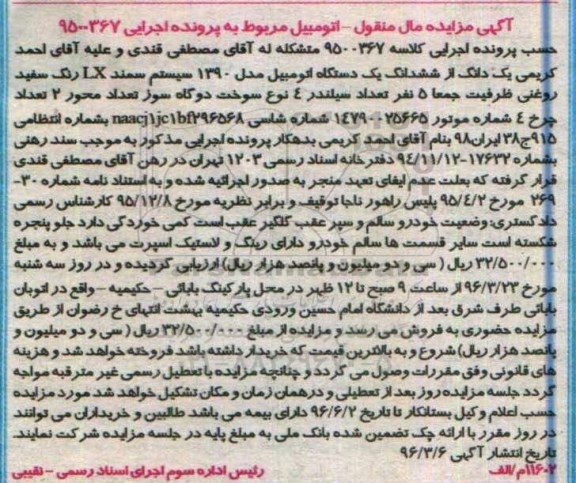 آگهی مزایده مال منقول - اتومبیل مربوط به پرونده اجرایی ۹۵۰۰۳۶۷
حسب پرونده اجرایی کلاسه ۹۵۰۰۳۶۷ متشکله له آقای مصطفی قندی و علیه آقای احمد
کریمی یک دانگ از ششدانگ یک دستگاه اتومبیل مدل ۱۳۹۰ سیستم سمند LX رنگ سفید
روغنی ظرفیت جمعا ۵ نفر تعداد سیلندر ۴ نوع سوخت دوگاه سوز تعداد محور ۲ تعداد
چرخ ۴ شماره موتور ۱۴۷۹۰۰۲۵۶۶۵ شماره شاسی naacj1jc1bf۲۹۶۵۶۸ بشماره انتظامی
۹۱۵ج۳۸ ایران۹۸ بنام آقای احمد کریمی بدهکار پرونده اجرایی مذکور به موجب سند رهنی
بشماره ۱۷۶۳۲-۹۴/۱۱/۱۲ دفتر خانه اسناد رسمی ۱۲۰۳ تهران در رهن آقای مصطفی قندی
قرار گرفته که بعلت عدم ایفای تعهد منجر به صدور اجرائیه شده و به استناد نامه شماره ۳۰-
۲۶۹ مورخ ۹۵/۴/۲ پلیس راهور ناجا توقیف و برابر نظریه مورخ ۹۵/۱۲/۸ کارشناس رسمی
دادگستری: وضعیت خودرو سالم و سپر عقب گلگیر عقب است کمی خوردگی دارد جلو پنجره
شکسته است سایر قسمت ها سالم خودرو دارای رینگ و لاستیک اسپرت می باشد و به مبلغ
۳۲/۵۰۰/۰۰۰ ریال ( سی و دو میلیون و پانصد هزار ریال) ارزیابی گردیده و در روز سه شنبه
مورخ ۹۶/۳/۲۳ از ساعت ۹ صبح تا ۱۲ ظهر در محل پارکینگ بابائی - حکیمیه - واقع در اتوبان
بابائی طرف شرق بعد از دانشگاه امام حسین ورودی حکیمیه بهشت انتهای خ رضوان از طریق
مزایده حضوری به فروش می رسد و مزایده از مبلغ ۳۲/۵۰۰/۰۰۰ ریال ( سی و دو میلیون و
پانصد هزار ریال) شروع و به بالاترین قیمت که خریدار داشته باشد فروخته خواهد شد و هزینه
های قانونی وفق مقررات وصول می گردد و چنانچه مزایده با تعطیل رسمی غیر مترقبه مواجه
گردد جلسه مزایده روز بعد از تعطیلی و در همان زمان و مکان تشکیل خواهد شد مورد مزایده
حسب اعلام وکیل بستانکار تا تاریخ ۹۶/۶/۲ دارای بیمه می باشد طالبین و خریداران می توانند
در روز مقرر با ارائه چک تضمین شده بانک ملی به مبلغ پایه در جلسه مزایده شرکت نمایند.
تاریخ انتشار آگهی ۹۶/۳/۶
۱۱۶۰۲م/الف رئیس اداره سوم اجرای اسناد رسمی - نقیبی